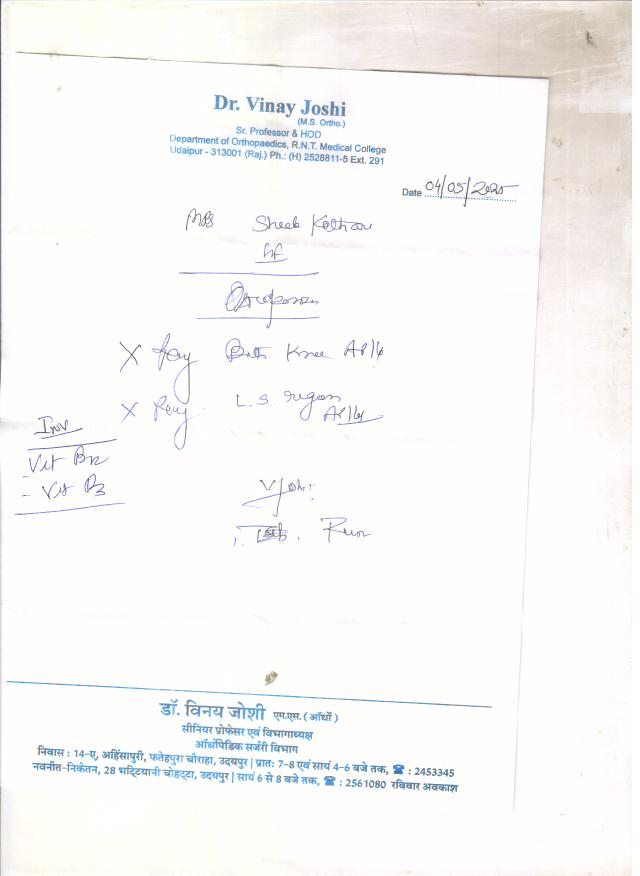 Dr. Vinay Joshi
(M.S. Ortho.)
Sr. Professor & HOD
Department of Orthopaedics, R.N.T. Medical College
Udaipur - 313001 (Raj.) Ph.: (H) 2528811-5 Ext. 291
Date 04/05/2025
X Ray Both Knee AP/L
X Ray L.S. region
AP/L
Inv
Vit B12
- Vit D3
डॉ. विनय जोशी एम.एस. ( ऑर्थो )
सीनियर प्रोफेसर एवं विभागाध्यक्ष
ऑर्थोपेडिक सर्जरी विभाग
निवास : 14-ए, अहिंसापुरी, फतेहपुरा चौराहा, उदयपुर | प्रातः 7-8 एवं सायं 4-6 बजे तक, ☎ : 2453345
नवनीत-निकेतन, 28 भट्टियानी चोहट्टा, उदयपुर | सायं 6 से 8 बजे तक, ☎ : 2561080 रविवार अवकाश